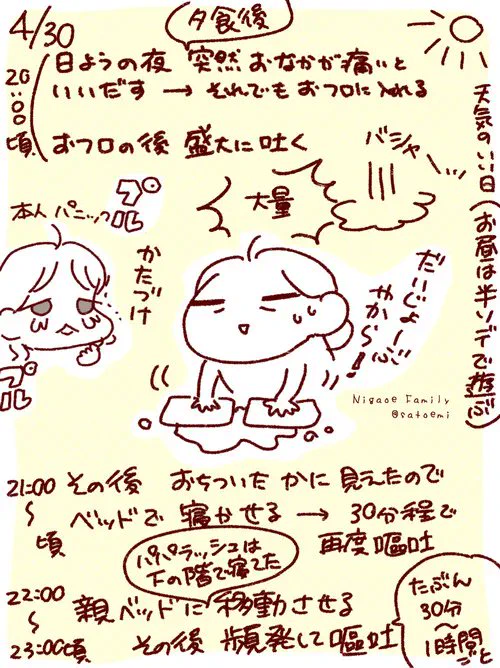 4/30
夕食後
20:00頃
日ようの夜 突然おなかが痛いと
いいだす → それでもおフロに入れる
おフロの後 盛大に吐く
天気のいい日(お昼は半ソデで遊ぶ)
バシャー
大量
本人パニック
プル
プル
かたづけ
だいじょーぶ
やから〜!
Nigaoe Family
@satoemi
21:00〜頃
その後 おちついたかに見えたので
ベッドで寝かせる → 30分程で
再度嘔吐
パパラッシュは
下の階で寝てた
22:00〜23:00頃
親ベッドに移動させる
その後 頻発して嘔吐
たぶん
30分
〜
1時間
ごと